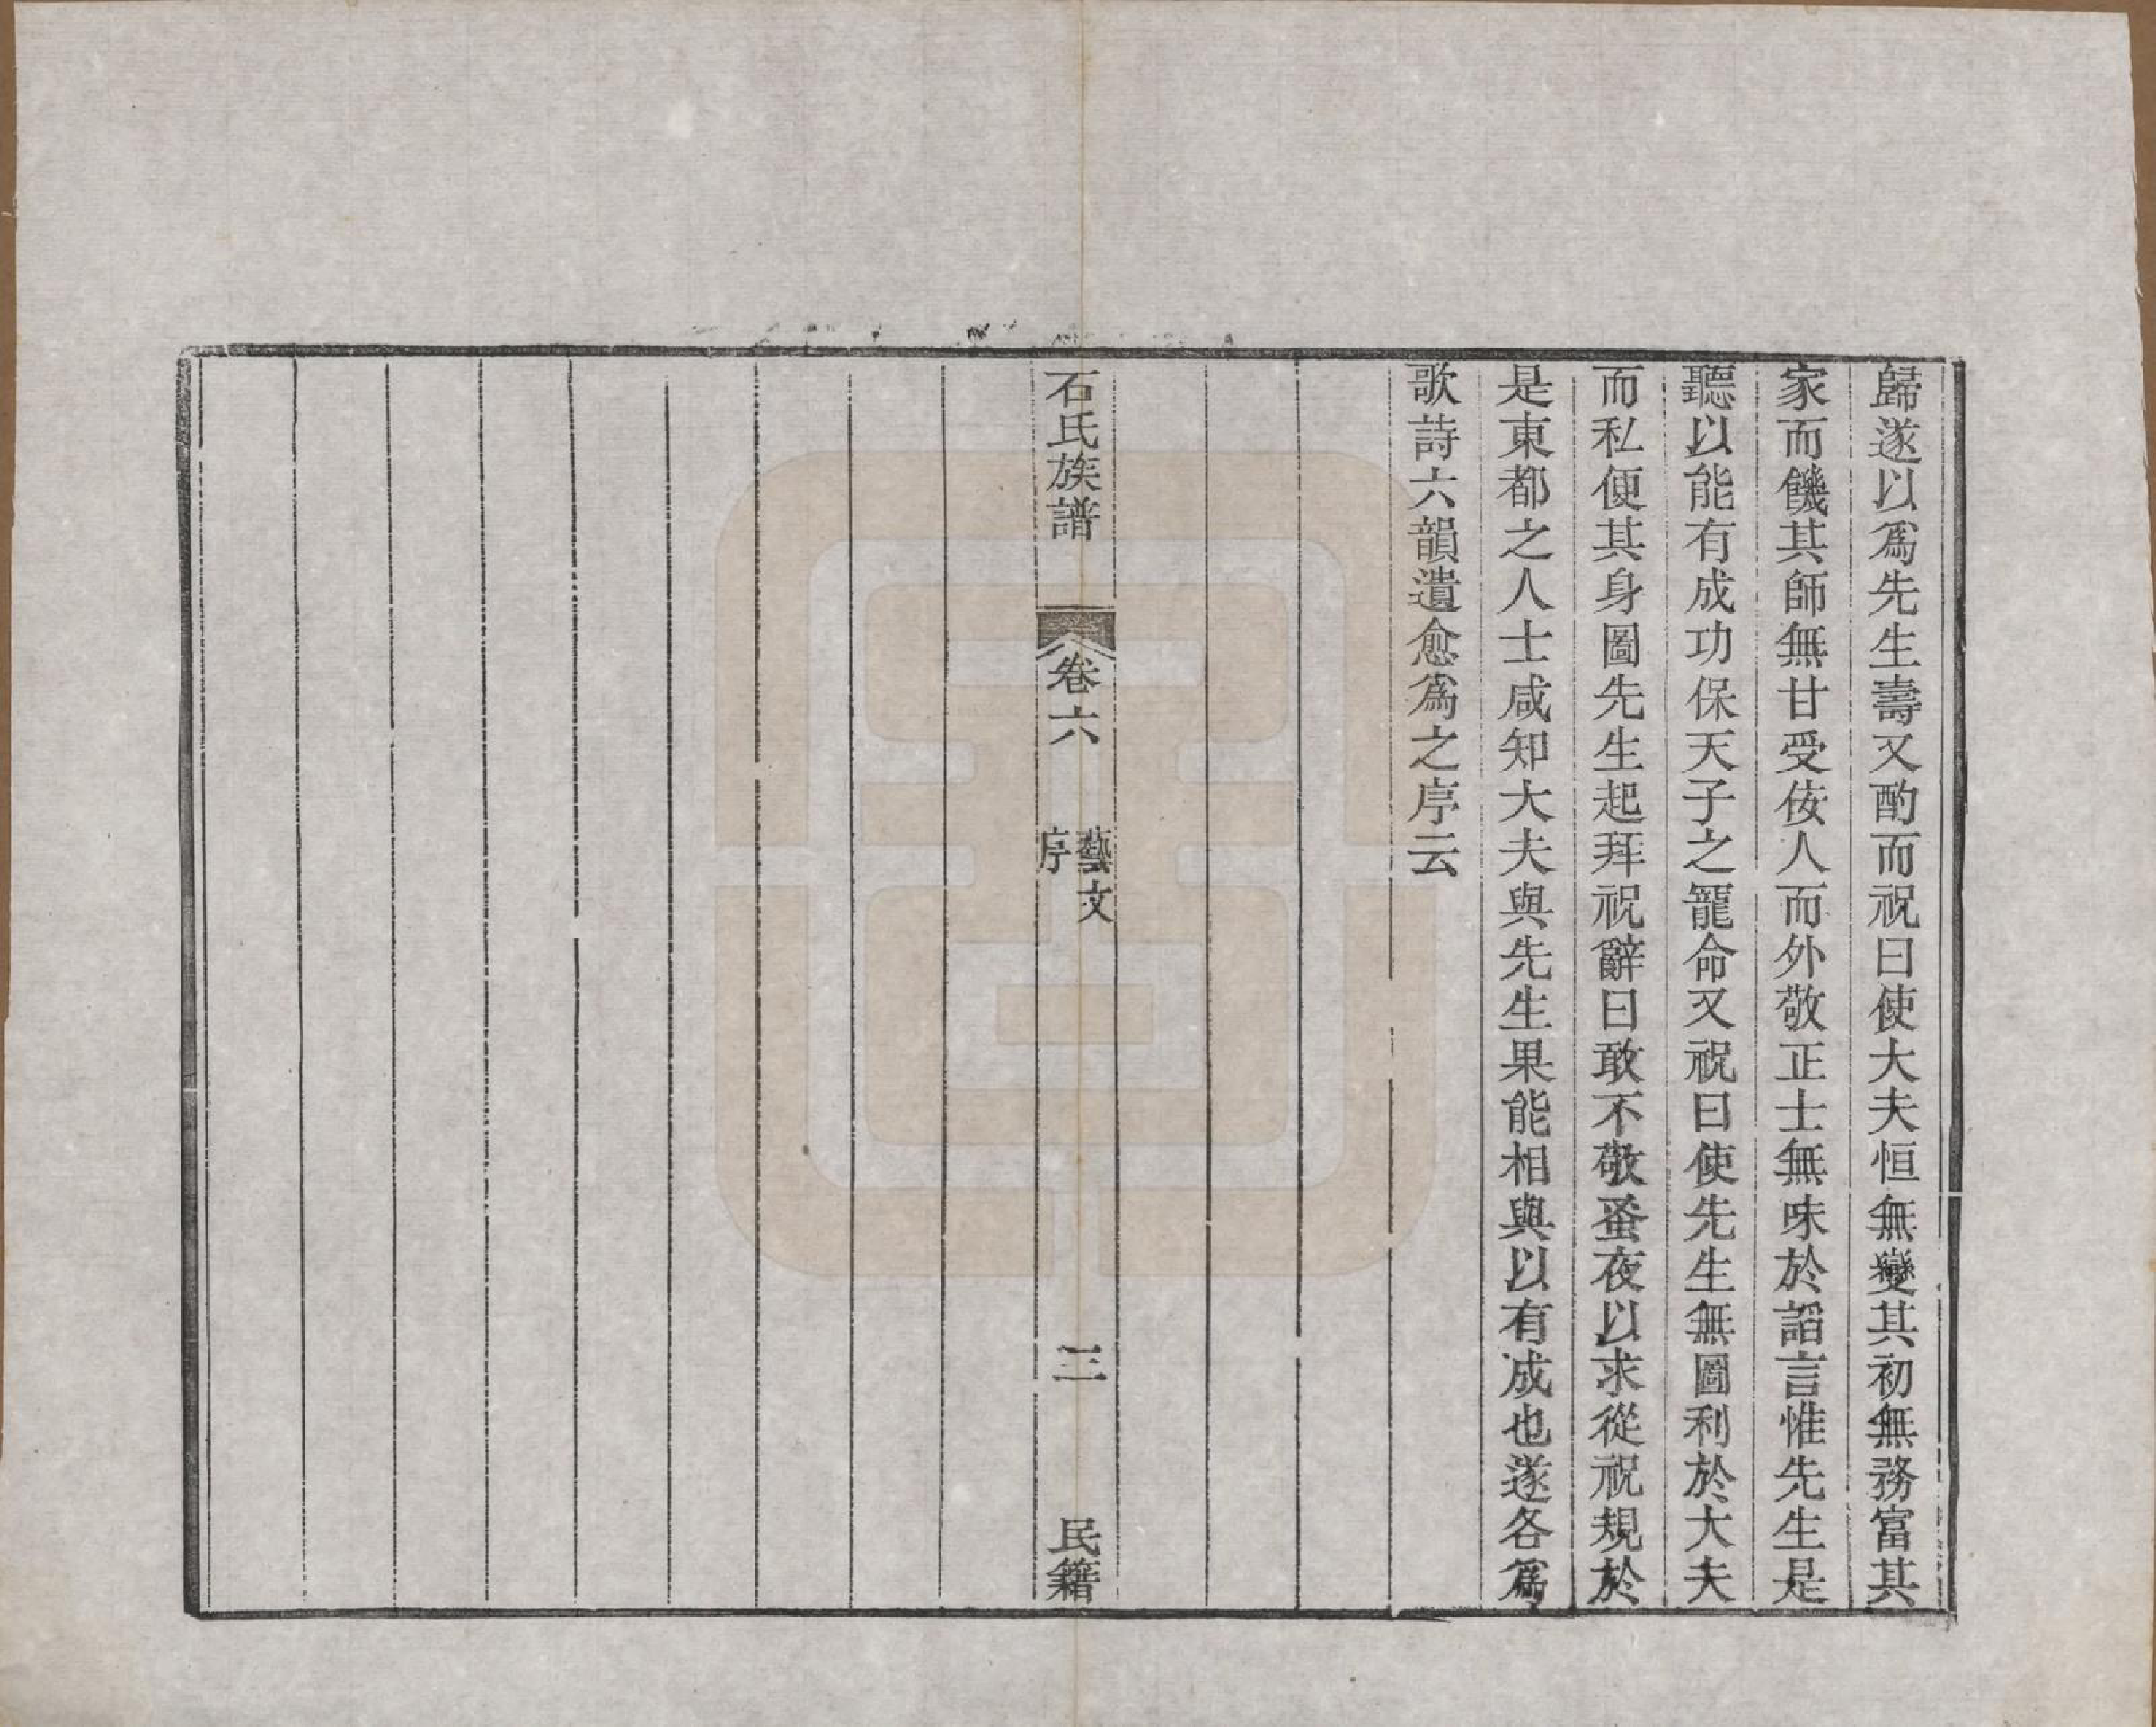 歸遂以爲先生壽又酌而祝曰使大夫恒無變其初無務富其
家而饑其師無甘受佞人而外敬正士無味於謟言惟先生是
聽以能有成功保天子之寵命又祝曰使先生無圖利於大夫
而私便其身圖先生起拜祝辭曰敢不敬蚤夜以求從祝規於
是東都之人士咸知大夫與先生果能相與以有成也遂各爲
歌詩六韻遺愈爲之序云
石氏族譜
卷六
藝文
序
三
民籍